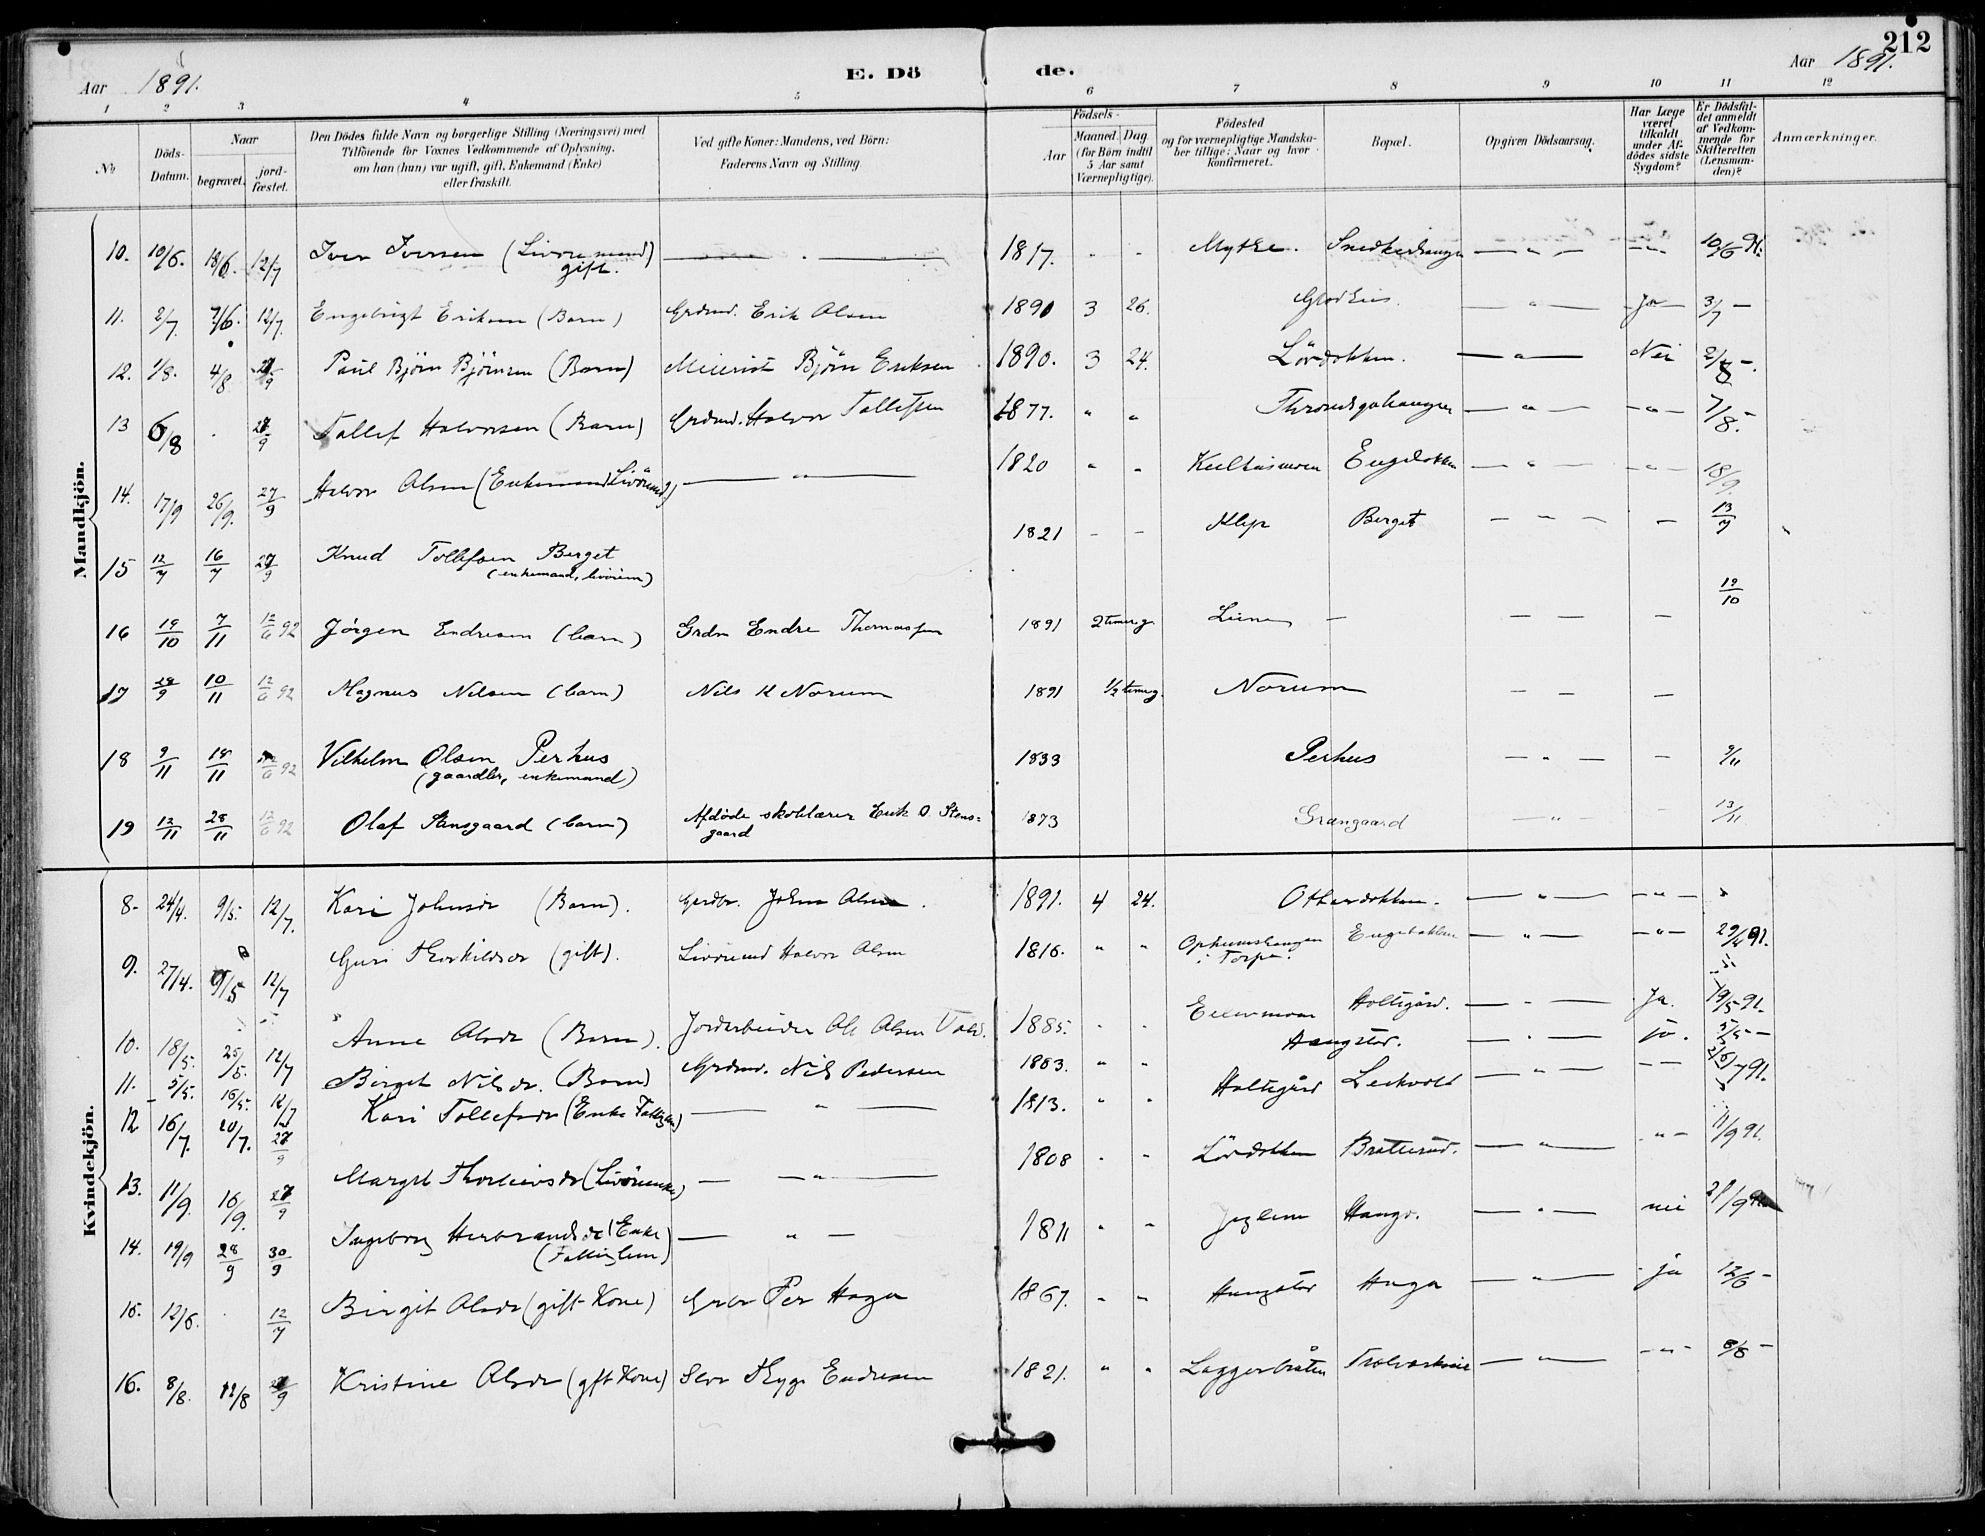 212
Aar 1891.
E. Dö
de.
Aar 1891.
1 2 3 4 5 6 7 8 9 10 11 12
No
Döds-Datum.
Naar
begravet.
jord-fæstet.
Den Dödes fulde Navn og borgerlige Stilling (Næringsvei) med
Tilföiende for Voxnes Vedkommende af Oplysning,
om han (hun) var ugift, gift, Enkemand (Enke)
eller fraskilt.
Ved gifte Koner: Mandens, ved Börn:
Faderens Navn og Stilling.
Födsels-
Aar
Maaned. Dag
(for Börn indtil
5 Aar samt
Værnepligtige).
Födested
og for værnepligtige Mandska-
ber tillige: Naar og hvor
konfirmeret.
Bopæl.
Opgiven Dödsaarsag.
Har Læge
været
tilkaldt
under Af-
dödes sidste
Sygdom?
Er Dödsfal-
det anmeldt
af Vedkom-
mende for
Skifteretten
(Lensman-
den)?
Anmærkninger.
Mandkjön.
10. 10/6. 18/6. 12/7 Iver Iversen (Livöremand) gift. 1817. Mytke. 10/6 91.
11. 2/7. 7/6. 12/7. Engebrigt Eriksen (Barn) Grdmd. Erik Olsen 1890 3 26. Ja 3/7 –
12. 1/8. 4/8. 27/9 Paul Björn Björnsen (Barn) Meierist Björn Eriksen 1890. 3 24. Lördokken. Nei 2/8 –.
13 6/8 27/9 Tollef Halvorsen (Barn) Grdmd. Halvor Tollefsen 1877. " " 7/8. –
14. 17/9 26/9. 27/9 Halvor Olsen (Enkemand Livöremd.) 1820 " " 18/9.
15 12/7 16/7 27/9 Knud Tollefsen Berget (enkemand, livörem) 1821 – – Klep Berget 13/7
16 19/10 7/11 12/6 92 Jörgen Endresen (barn) Grdm Endre Thomassen 1891 2 timer g. 19/10
17 28/9 10/11 12/6 92 Magnus Nilsen (barn) Nils K Norum 1891 1/2 time g. Norum
18 9/11 18/11 12/6 92 Vilhelm Olsen Perhus (gaardbr, enkemand) 1833 Perhus 9/11
19 12/11 28/11 12/6 92 Olaf Stensgaard (barn) Afdöde skolelærer Erik O. Stens=gaard 1873 Grangaard 13/11
Kvindekjön.
8. 24/4. 9/5. 12/7. Kari Johnsdr (Barn). Gardbr. John Olsen. 1891. 4 24. Otterdokken.
9. 27/4. 9/5 12/7 Guri Thorkildsdr (gift). Livöremd Halvor Olsen 1816. " " i Torpe. 29/4 91.
10. 18/5. 25/5 12/7 Anne Olsdr (Barn). Jordarbeider Ole Olsen 1885. Holtegård. Ja. 19/5 91.
11. 5/5. 16/5. 12/7 Birget Nilsdr. (Barn) Grdmd. Nils Pedersen 1883. " " Haugstad. ja. 5/5 –
12 16/7. 20/7. 27/9 Kari Tollefsdr (Enke Fattiglem) 1813. " " Holtegård
13. 11/9. 16/9. 27/9 Margit Thorleivsdr (Livörenke) 1808 Lördokken Bratterud. 11/9 91.
14. 19/9 28/9 30/9 Ingeborg Herbrandsdr (Enke) (Fattiglem) 1811 " " Hauge. nei 21/9 91.
15. 12/6. 12/7 Birgit Olsdr (gift Kone) Grbr Per Haga 1867. " " Haugstad Haga ja 12/6 –
16. 8/8. 12/8 27/9 Kristine Olsdr (gft Kone) Endresen 1821. " " Laggerbråten 8/8 –